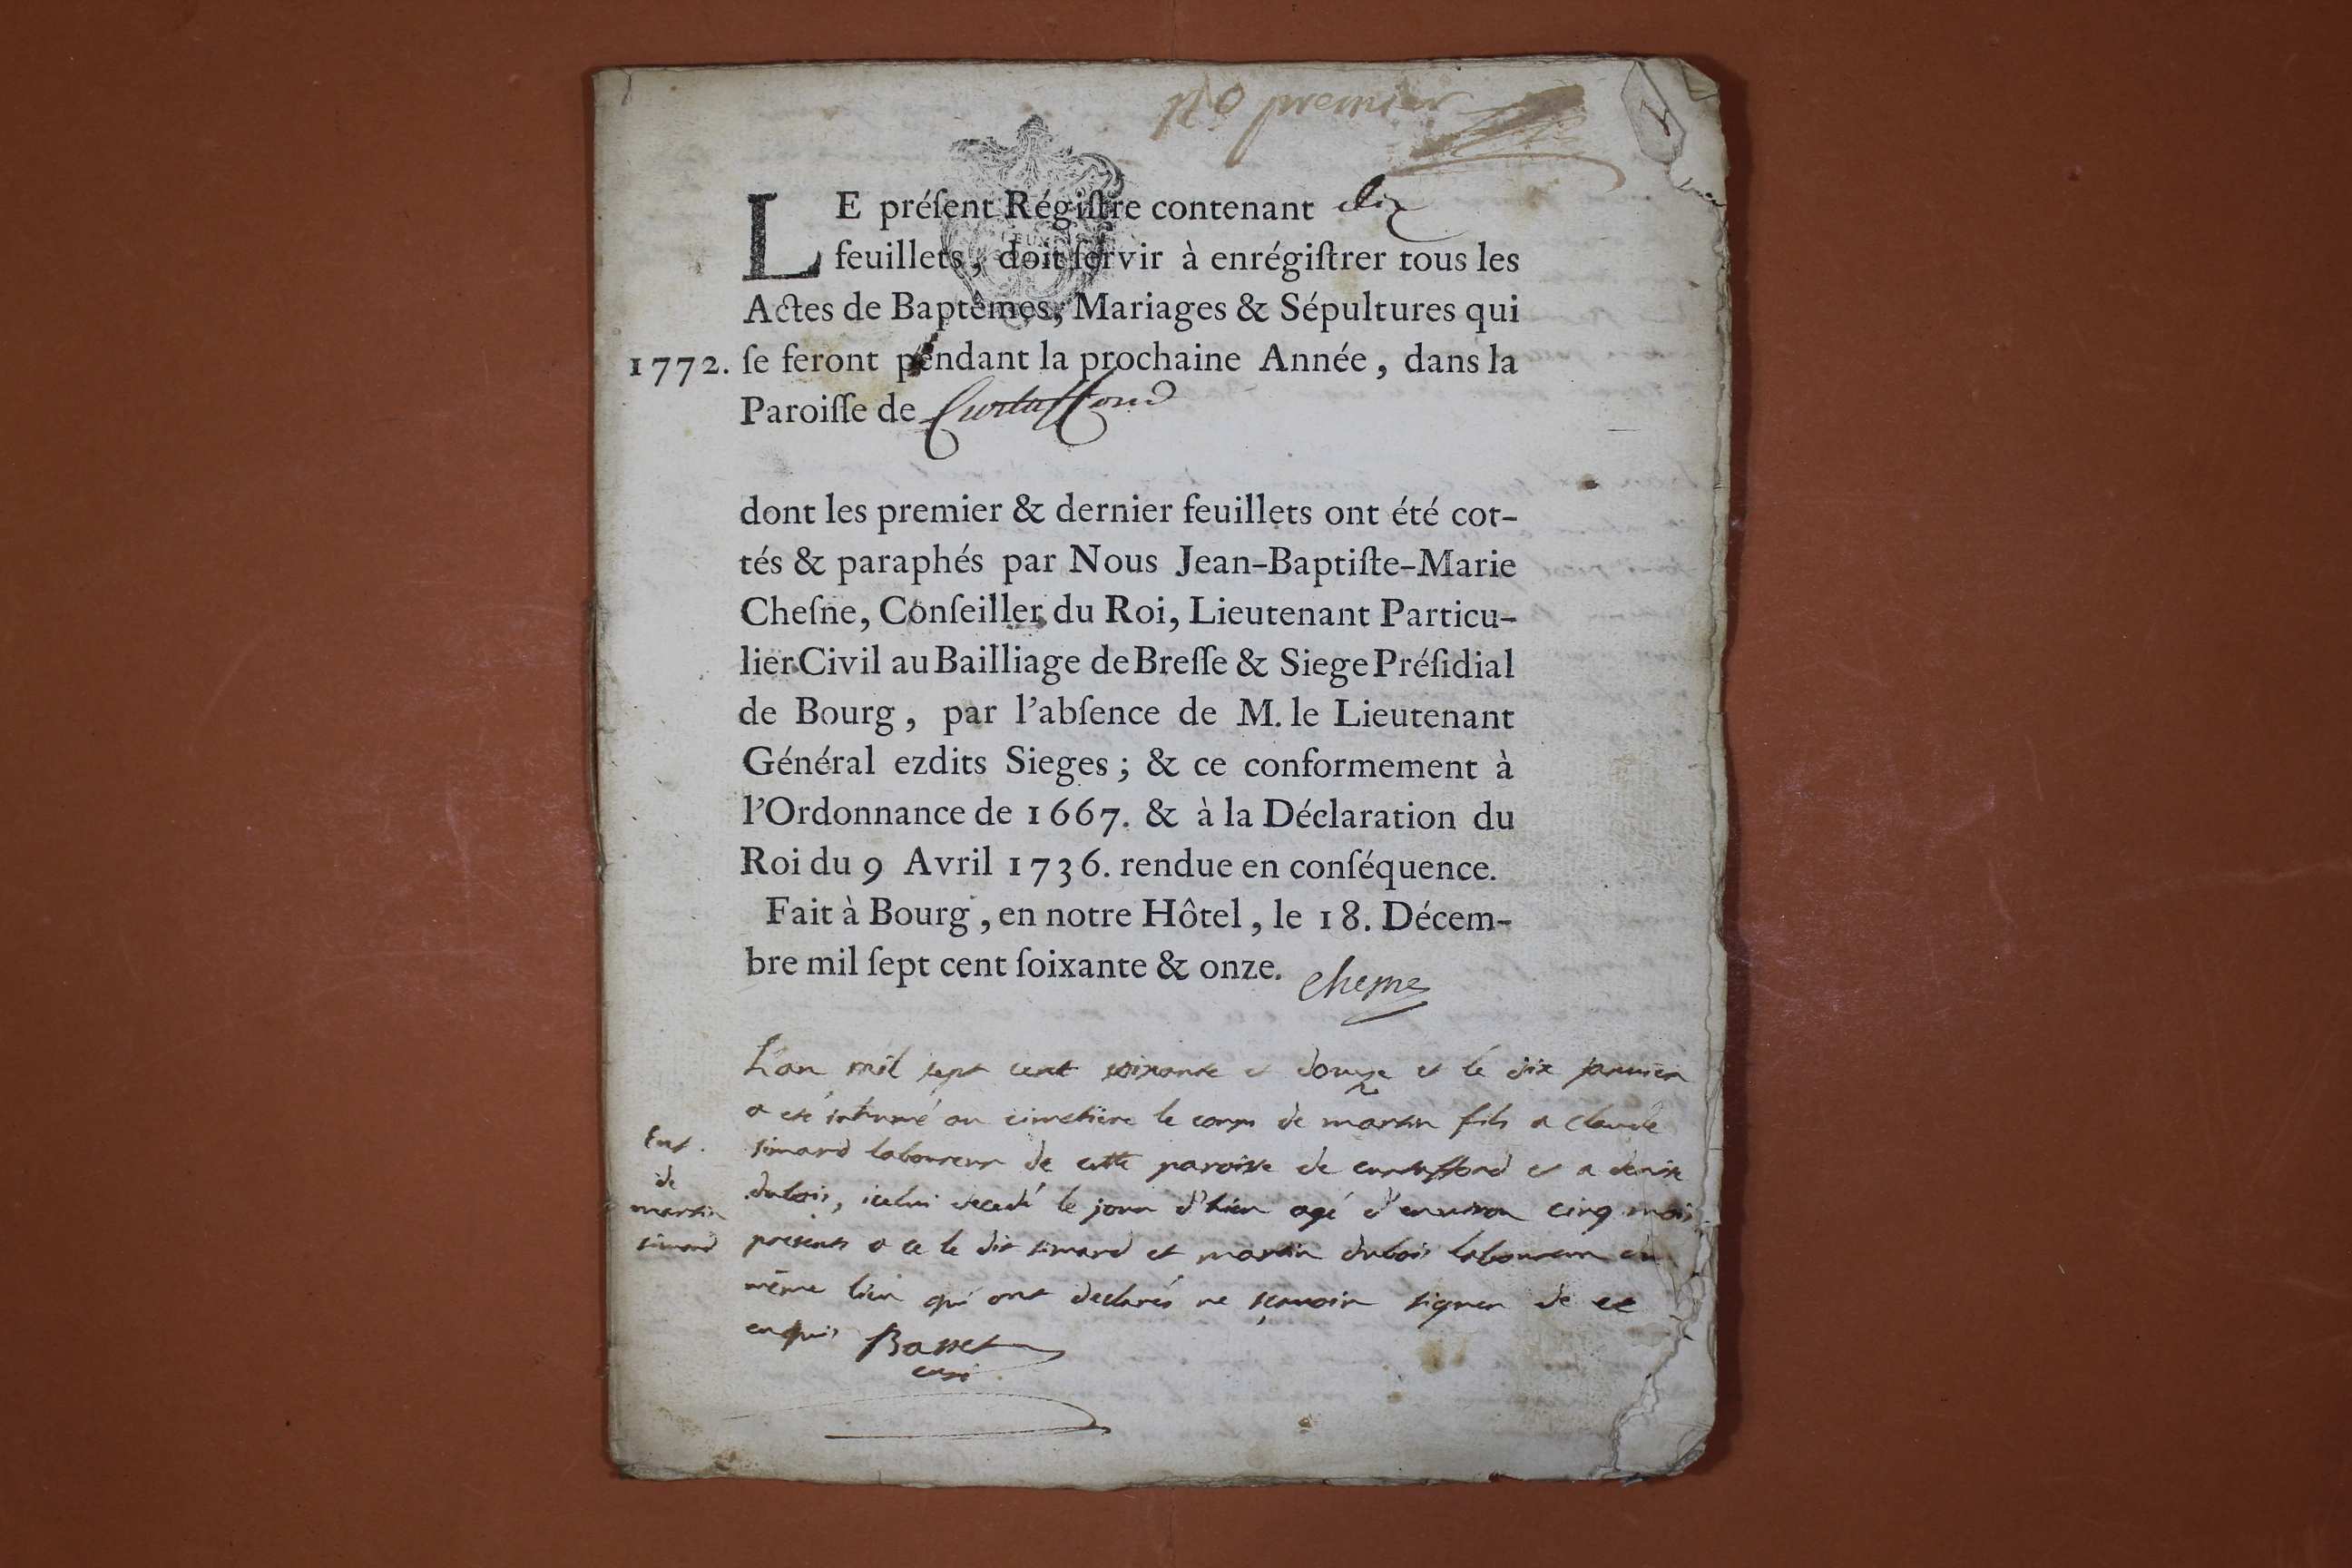 no premier
LE préſent Régiſtre contenant dix
feuillets, doit ſervir à enrégiſtrer tous les
Actes de Baptêmes, Mariages & Sépultures qui
1772. ſe feront pendant la prochaine Année, dans la
Paroiſſe de Curtaffond
dont les premier & dernier feuillets ont été cot-
tés & paraphés par Nous Jean-Baptiſte-Marie
Cheſne, Conſeiller du Roi, Lieutenant Particu-
lier Civil au Bailliage de Breſſe & Siege Préſidial
de Bourg, par l'abſence de M. le Lieutenant
Général ezdits Sieges; & ce conformement à
l'Ordonnance de 1667. & à la Déclaration du
Roi du 9 Avril 1736. rendue en conſéquence.
Fait à Bourg, en notre Hôtel, le 18. Décem-
bre mil ſept cent ſoixante & onze. Chesne
L'an mil sept cent soixante et douze et le dix janvier
a eté inhumé au cimetière le corps de martin fils a claude
simard laboureur de cette paroisse de curtaffond et a denise
dubois, icelui decedé le jour d'hier agé d'environ cinq mois
presents a ce le dit simard et martin dubois laboureur du
même lieu qui ont declarés ne sçavoir signer de ce
enquis Basset
curé
Ent.
de
martin
simard